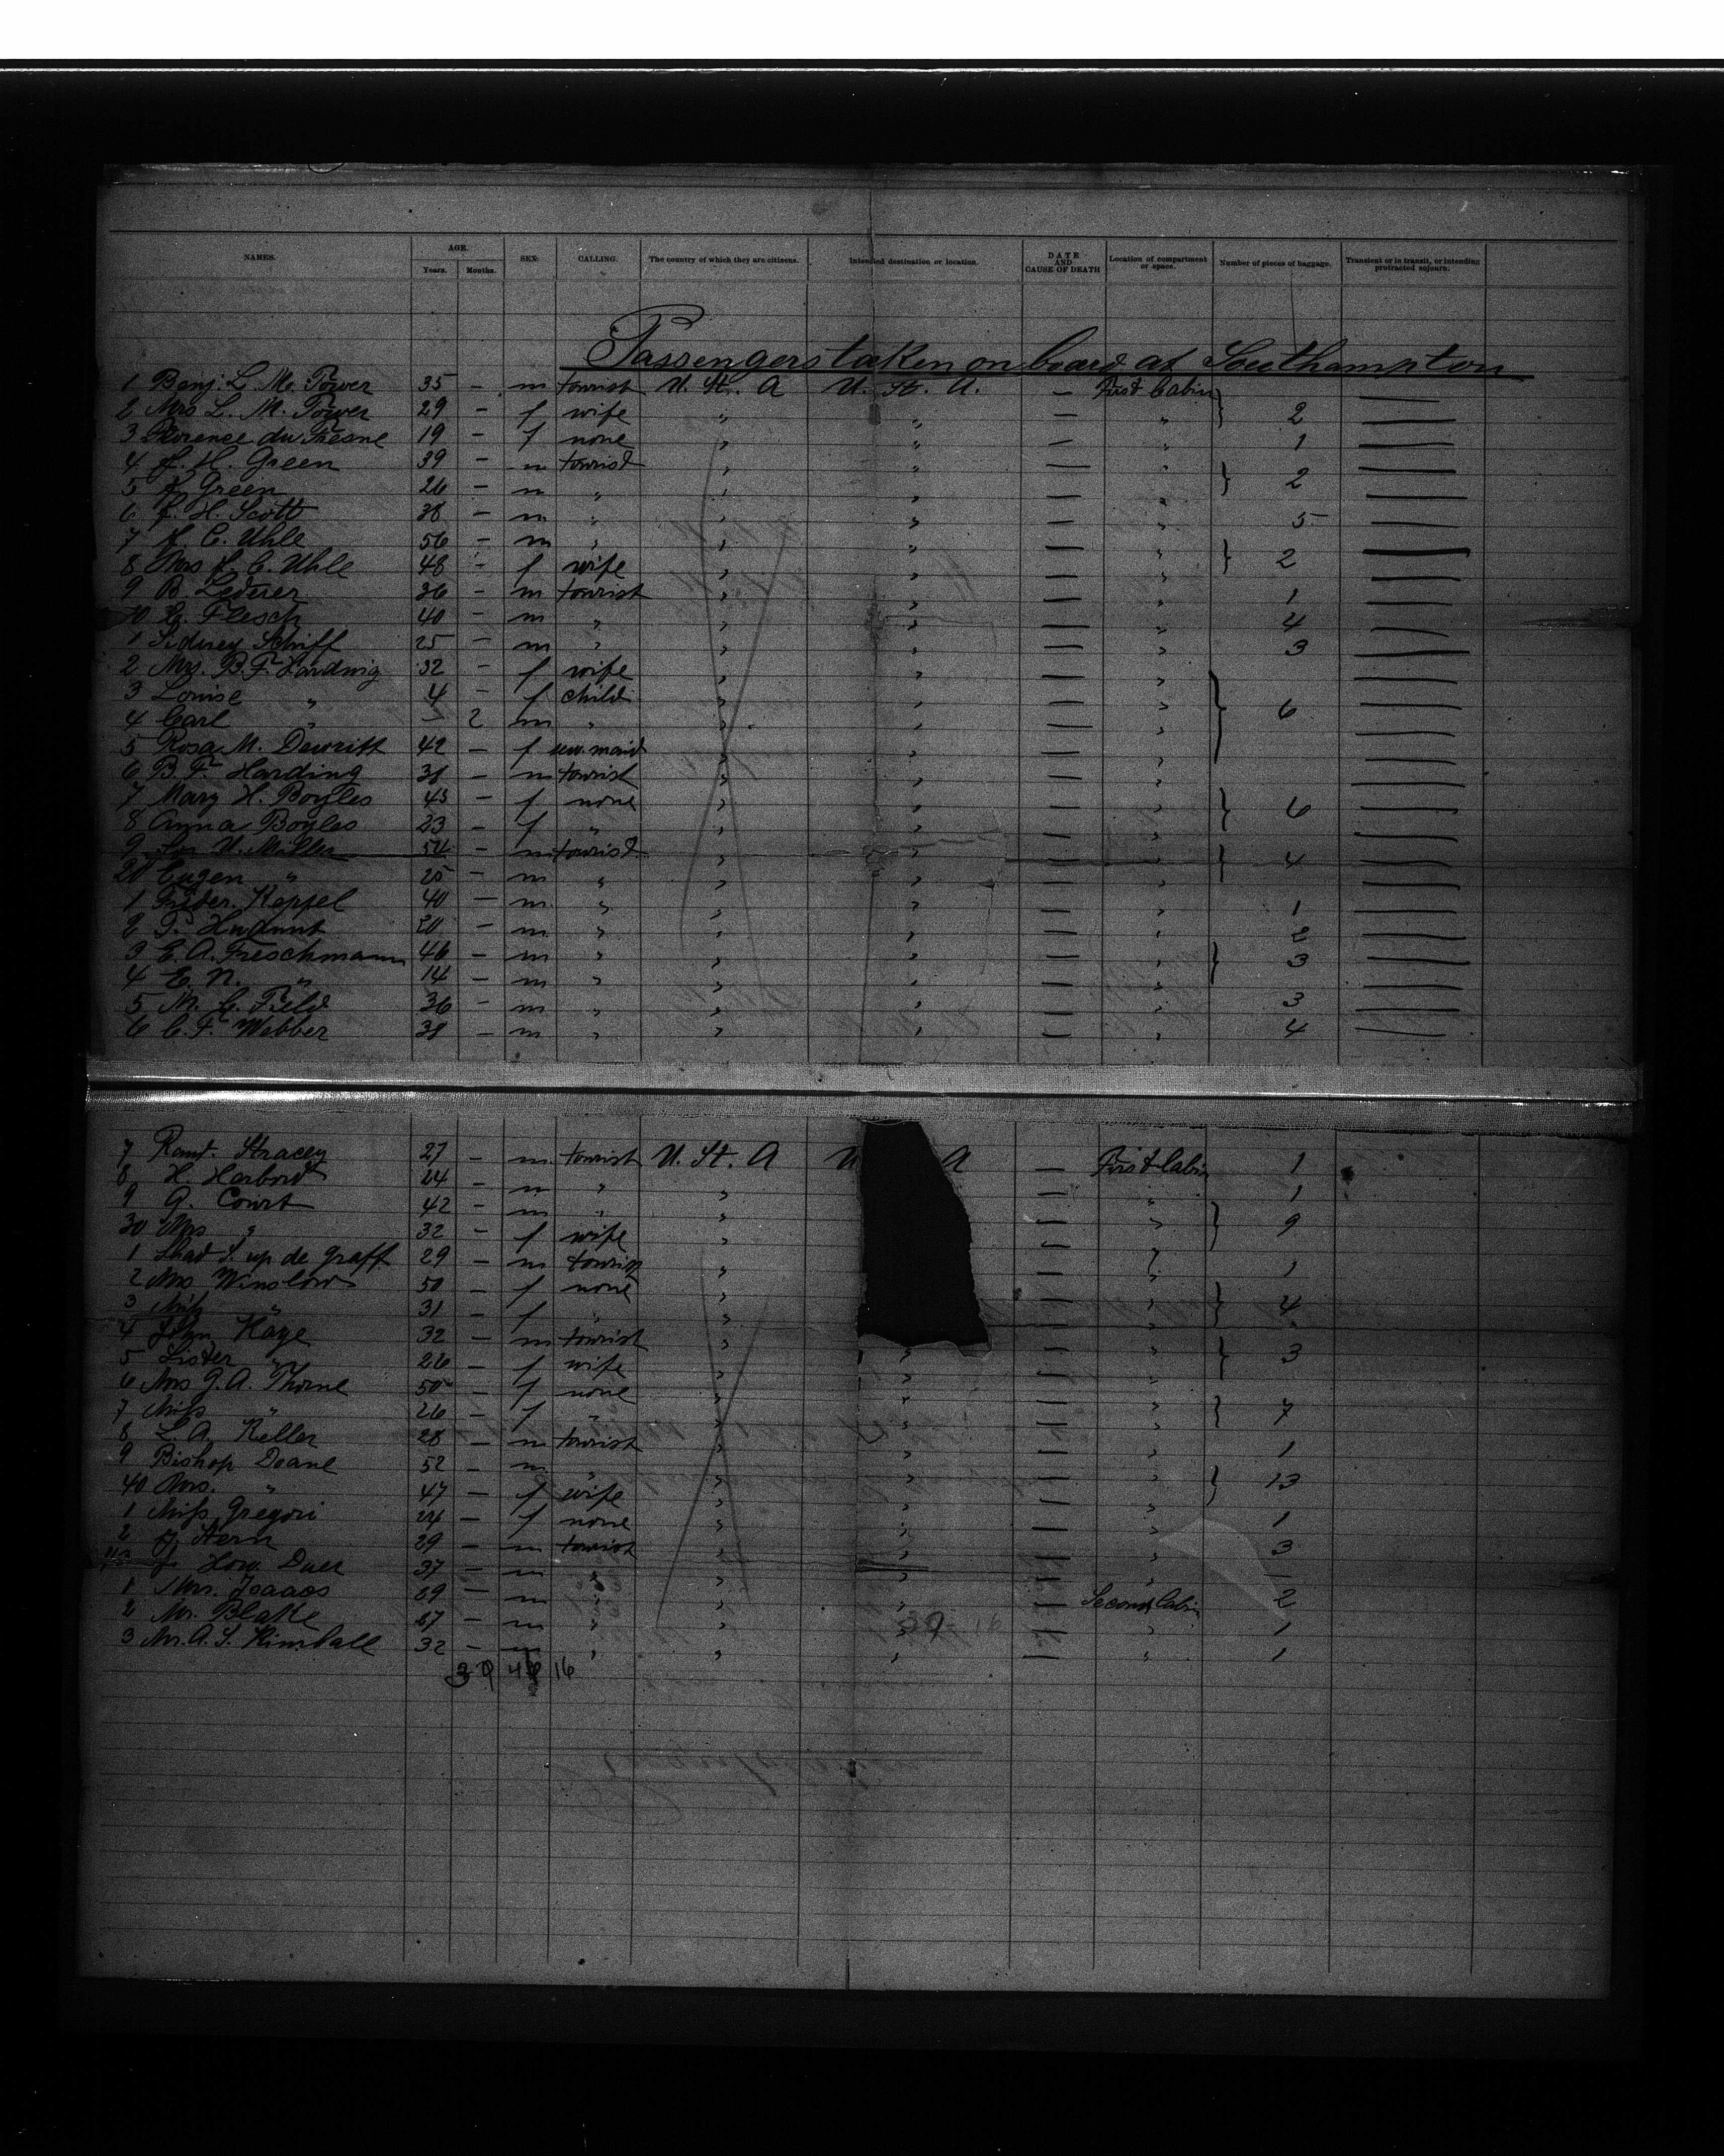 NAMES. AGE. Years. Months. SEX. CALLING. The country of which they are citizens. Intended destination or location. DATE AND CAUSE OF DEATH Location of compartment or space. Number of pieces of baggage. Transient or in transit, or intending protracted sojourn.
Passengers taken on board at Southampton
1 Benj. L. M. Tower 35 — m tourist U. St. A U. St. A. — First Cabin
2 Mrs L. M. Tower 29 — f wife " " — " 2 —
3 Florence du Fresne 19 — f none " " — " 1 —
4 H. Green 39 — m tourist " " — "
5 Green 26 — m " " " — " 2 —
6 H. Scott 38 — m " " " — " 5 —
7 C. Uhle 56 — m " " " — "
8 Mrs C. Uhle 48 — f wife " " — " 2 —
9 B. Lederer 36 — m tourist " " — " 1 —
10 Flesch 40 — m " " " — " 4 —
1 Sidney Schiff 25 — m " " " — " 3 —
2 B. F. 32 — f wife " " — "
3 Louise " 4 — f child " " — " 6 —
4 Carl " — 2 m " " " — "
5 Rosa M. 42 — f maid " " — "
6 B. F. Harding 38 — m tourist " " — "
7 Mary H. Boyles 43 — f none " " — " 6 —
8 Anna Boyles 23 — f " " " — "
9 Miller 54 — m tourist " " — " 4 —
20 Eugen " 25 — m " " " — "
1 Keppel 40 — m " " " — " 1 —
2 20 — m " " " — " 2 —
3 E. A. 46 — m " " " — " 3 —
4 E. N. " 14 — m " " " — "
5 M. C. Field 36 — m " " " — " 3 —
6 C. F. Webber 38 — m " " " — " 4 —
7 Stracey 27 — m tourist U. St. A U A — First Cabin 1
8 H. Harbord 24 — m " " — " 1
9 Court 42 — m " " — " 9
30 Mrs " 32 — f wife " — "
1 up de Graff 29 — m tourist " — " 1
2 Mrs Winslow 50 — f none " — "
3 Miss " 31 — f " " — " 4
4 John Kaye 32 — m tourist " — "
5 Sister " 26 — f wife " " — " 3
6 Mrs G. A. Thorne 50 — f none " " — "
7 Miss " 26 — f " " " — " 7
8 L. A. Keller 28 — m tourist " " — " 1
9 Bishop Doane 52 — m " " " — " 13
40 Mrs. " 47 — f wife " " — "
1 Miss Gregori 24 — f none " " — " 1
2 J. Stern 29 — m tourist " " — " 3
37 — m " " " — " —
1 Isaacs 29 — m " " " — Second Cabin 2
2 Mr. Blake 27 — m " " " — " 1
3 Mr. A. S. Kimball 32 — m " " " — " 1
16